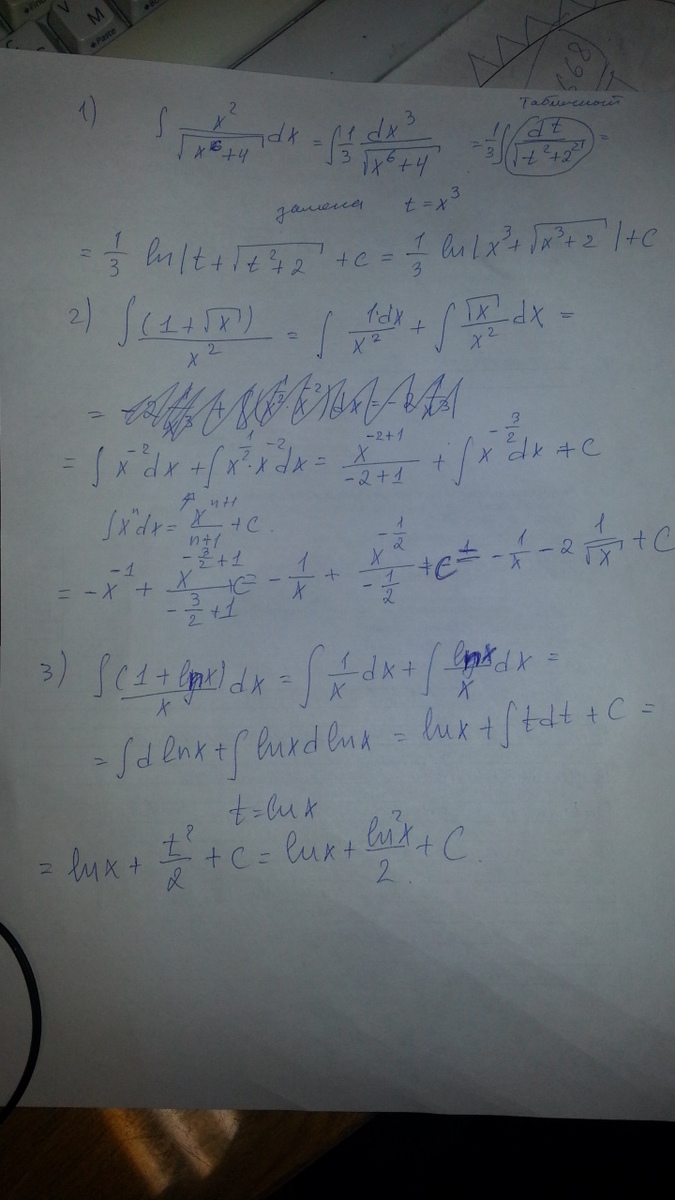 Табличный
1) ∫ x²/√(x⁶+4) dx = ∫ 1/3 dx³/√(x⁶+4) = 1/3 ∫ dt/√(t²+2²) =
замена t = x³
= 1/3 ln|t + √(t²+2) + C = 1/3 ln|x³ + √(x³+2)| + C
2) ∫ (1+√x)/x² = ∫ 1·dx/x² + ∫ √x/x² dx =
=
= ∫ x⁻² dx + ∫ x^(1/2) · x⁻² dx = x^(-2+1)/(-2+1) + ∫ x^(-3/2) dx + C
∫ xⁿ dx = x^(n+1)/(n+1) + C.
= -x⁻¹ + x^(-3/2+1)/(-3/2+1) + C = -1/x + x^(-1/2)/(-1/2) + C = -1/x - 2 1/√x + C
3) ∫ (1+lnx)/x dx = ∫ 1/x dx + ∫ lnx/x dx =
= ∫ d lnx + ∫ lnx d lnx = lnx + ∫ t dt + C =
t = lnx
= lnx + t²/2 + C = lnx + ln²x/2 + C.